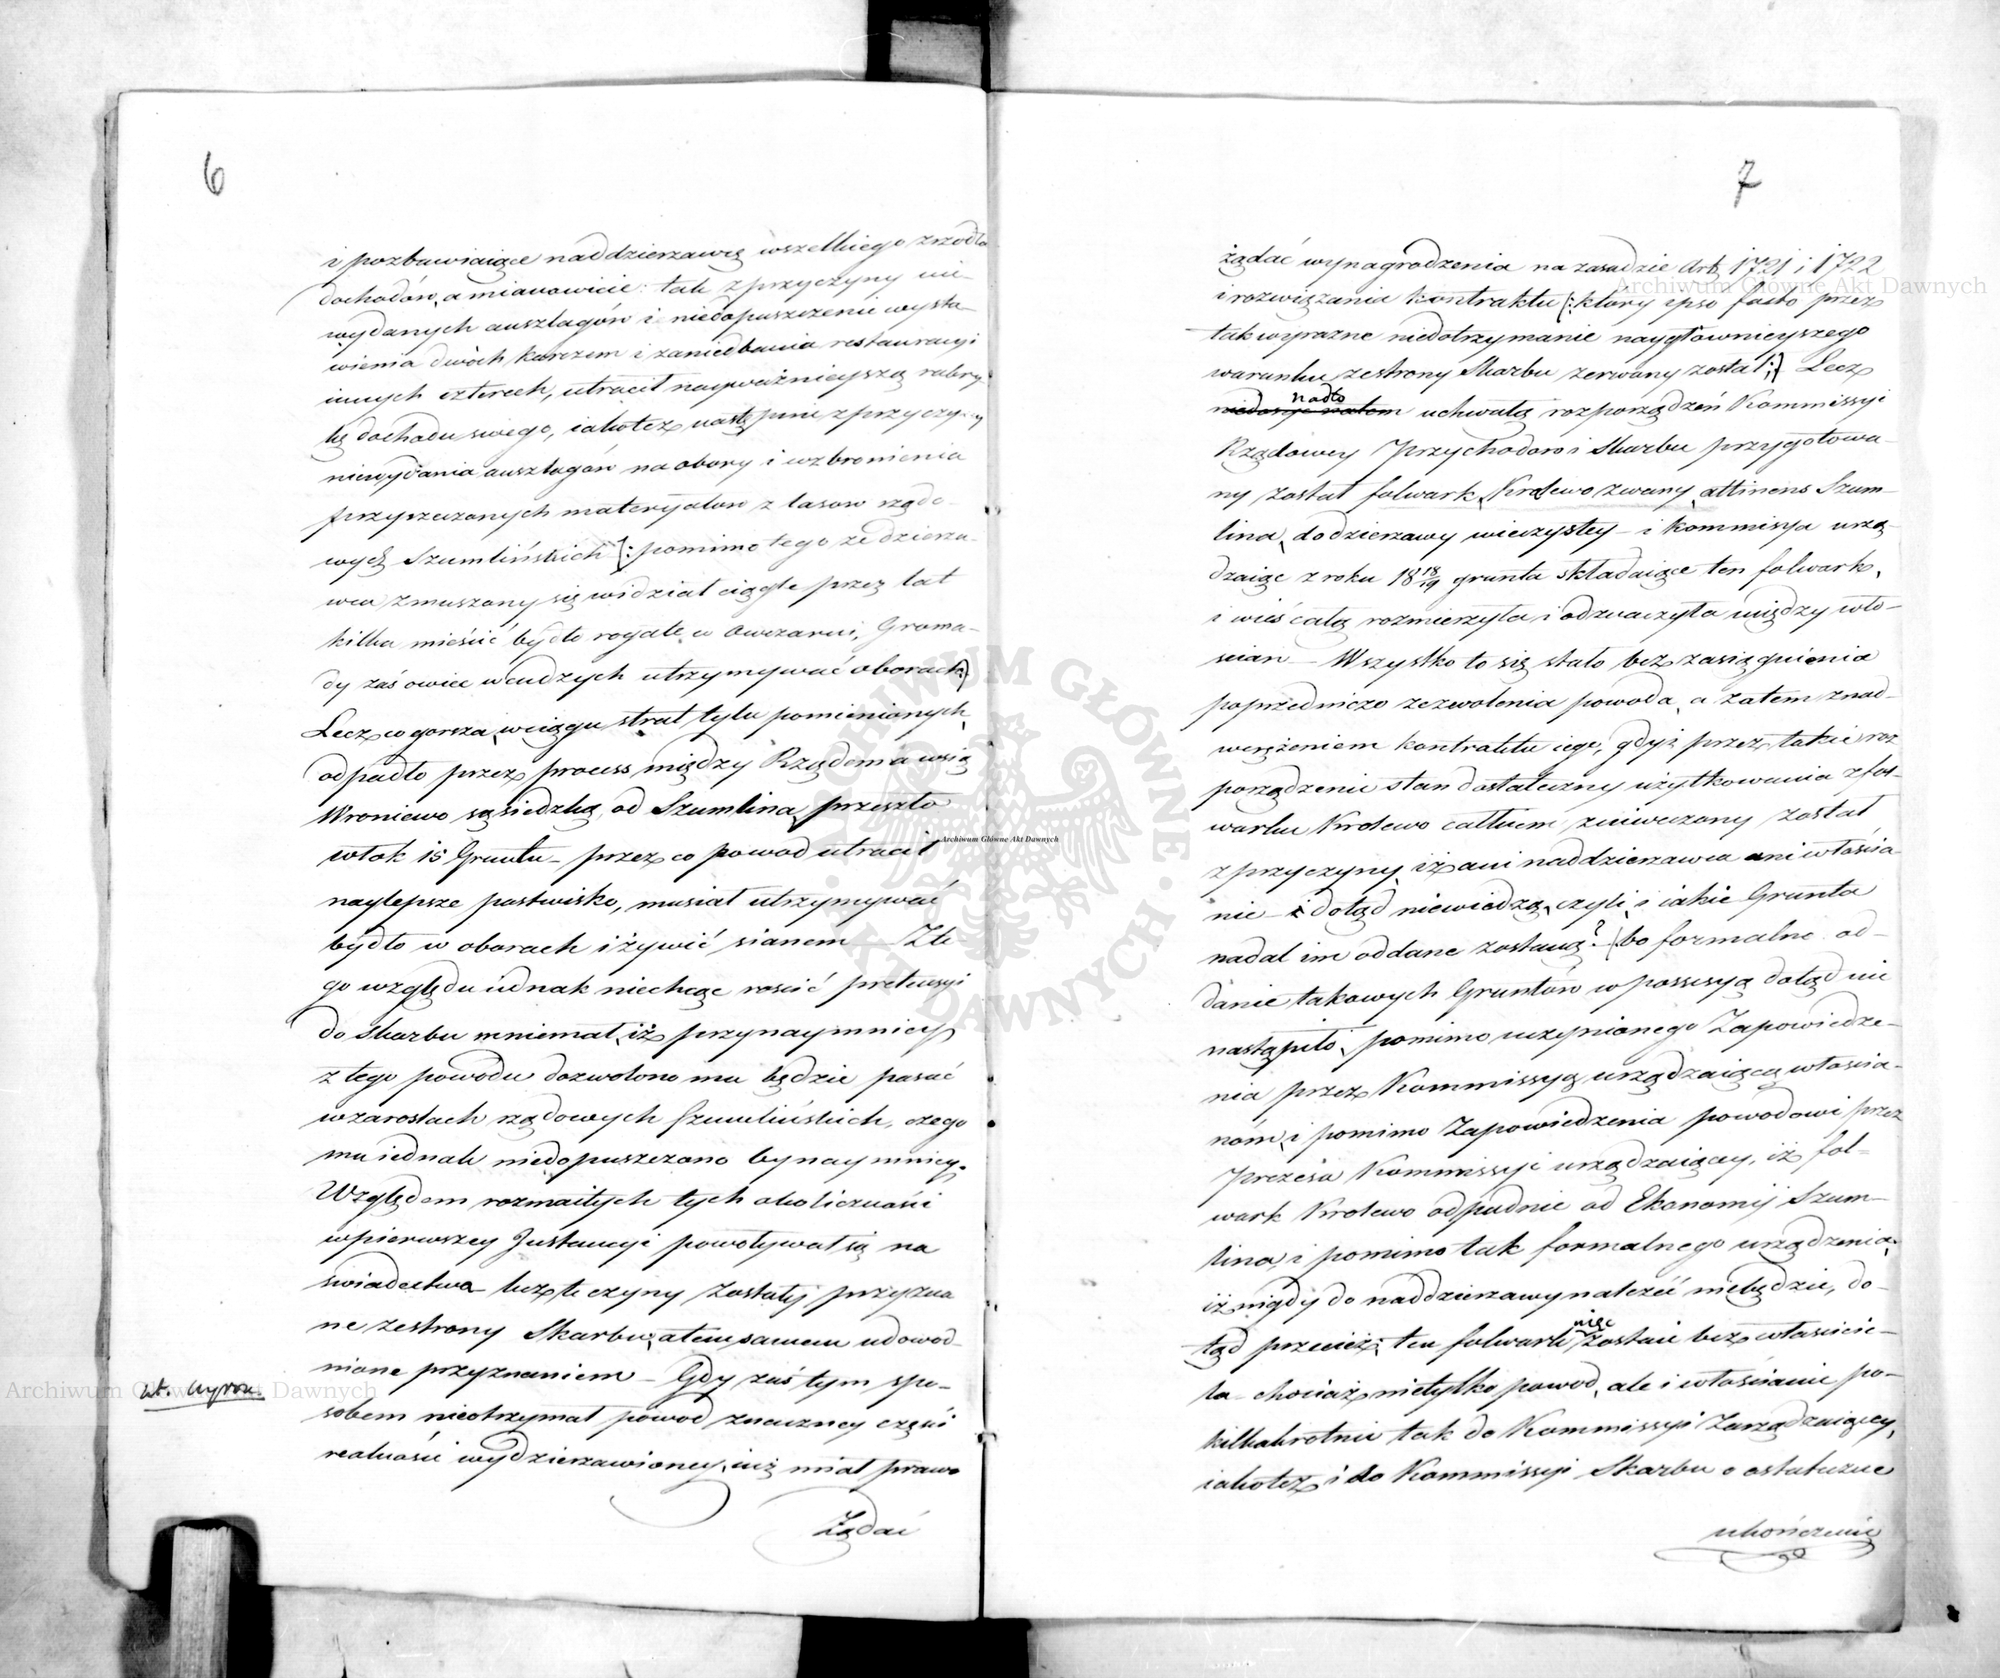 6
i pozbawiaiące naddzierzawcę wszelkiego zrzódła
dochodów, a mianowicie: tak z przyczyny nie
wydanych auszlagów i niedopuszczenie wysta
wienia dwóch karczem i zaniedbania restauracyi
innych czterech, utracił naywaźnieyszą rubry
kę dochodu swego, iakoteż następnie z przyczyny
niewydania auszlagów na obory i wzbronienia
przyrzeczonych materyałow z lasow rządo-
wych Szumlińskich /: pomimo tego ze dzierza-
wca zmuszony się widział ciągle przez lat
kilka mieścić bydło rogate w Owczarni, Groma-
dy zaś owiec w cudzych utrzymywać oborach:/
Lecz co gorsza, wciągu strat tylu pomienionych,
odpadło przez process między Rządem a wsią
Wroniewo sąsiedzką od Szumlina, przeszło
włok 15 Gruntu – przez co powod utracił
naylepsze pastwisko, musiał utrzymywać
bydło w oborach i żywić sianem — Z te
go względu iednak niechcąc rościć pretensyi
do skarbu mniemał, iż przynaymniey
z tego powodu dozwolono mu będzie pasać
w zarostach rządowych Szumlińskich, czego
mu iednak niedopuszczono bynaymniey.
Względem rozmaitych tych okoliczności
w pierwszey Instancyi powoływał się na
swiadectwa lecz te czyny zostały przyzna
ne ze strony Skarbu, a tem samem udowod-
nione przyznaniem – Gdy zaś tym spo-
sobem nieotrzymał powod znaczney części
realności wydzierzawioney, iuż miał prawo
Żądać
7
żądać wynagrodzenia na zasadzie Art. 1721 i 1722
i rozwiązania kontraktu /: który ipso facto przez
tak wyrazne niedotrzymanie naygłownieyszego
warunku ze strony Skarbu zerwany został :/ Lecz
nadto
uchwałą rozporządzeń Kommissyi
Rządowey Przychodow i Skarbu przygotowa-
ny został folwark, Krolewo zwany, attinens Szum-
lina, do dzierzawy wieczystey – i kommisya urzą-
dzaiąc z roku 18 18/19 grunta składaiące ten folwark,
i wieś całą rozmierzyła i odznaczyła między wło-
scian – Wszystko to się stało bez zasiągnienia
poprzedniczo zezwolenia powoda, a zatem z nad-
weręzeniem kontraktu iego, gdyż przez takie roz
porządzenie stan dostateczny użytkowania z fol-
warku Krolewo całkiem zniweczony został
z przyczyny, iż ani naddzierzawca ani włościa-
nie i dotąd niewiedzą, czyli, i iakie Grunta
nadal im oddane zostaną? – bo formalne od-
danie takowych Gruntów w possesyą dotąd nie
nastąpiło, pomimo uczynionego Zapowiedze-
nia przez Kommissyą urządzaiącą włościa-
nóm, i pomimo Zapowiedzenia powodowi przez
Prezesa Kommissyi urządzaiącey, iż fol-
wark Krolewo odpadnie od Ekonomij Szum-
lina, i pomimo tak formalnego urządzenia,
iż nigdy do naddzierzawy należeć niebędzie, do-
więc
tąd przecież, ten folwark zostaie bez właścicie-
la – chociaż nietylko powod, ale i włościanie po-
kilkakrotnie tak do Kommissyi Zarządzaiącey,
iakoteż i do Kommissyi Skarbu o ostateczne
ukończenie
Archiwum Główne Akt Dawnych
Archiwum Główne Akt Dawnych
Archiwum Główne Akt Dawnych
ARCHIWUM GŁÓWNE AKT DAWNYCH